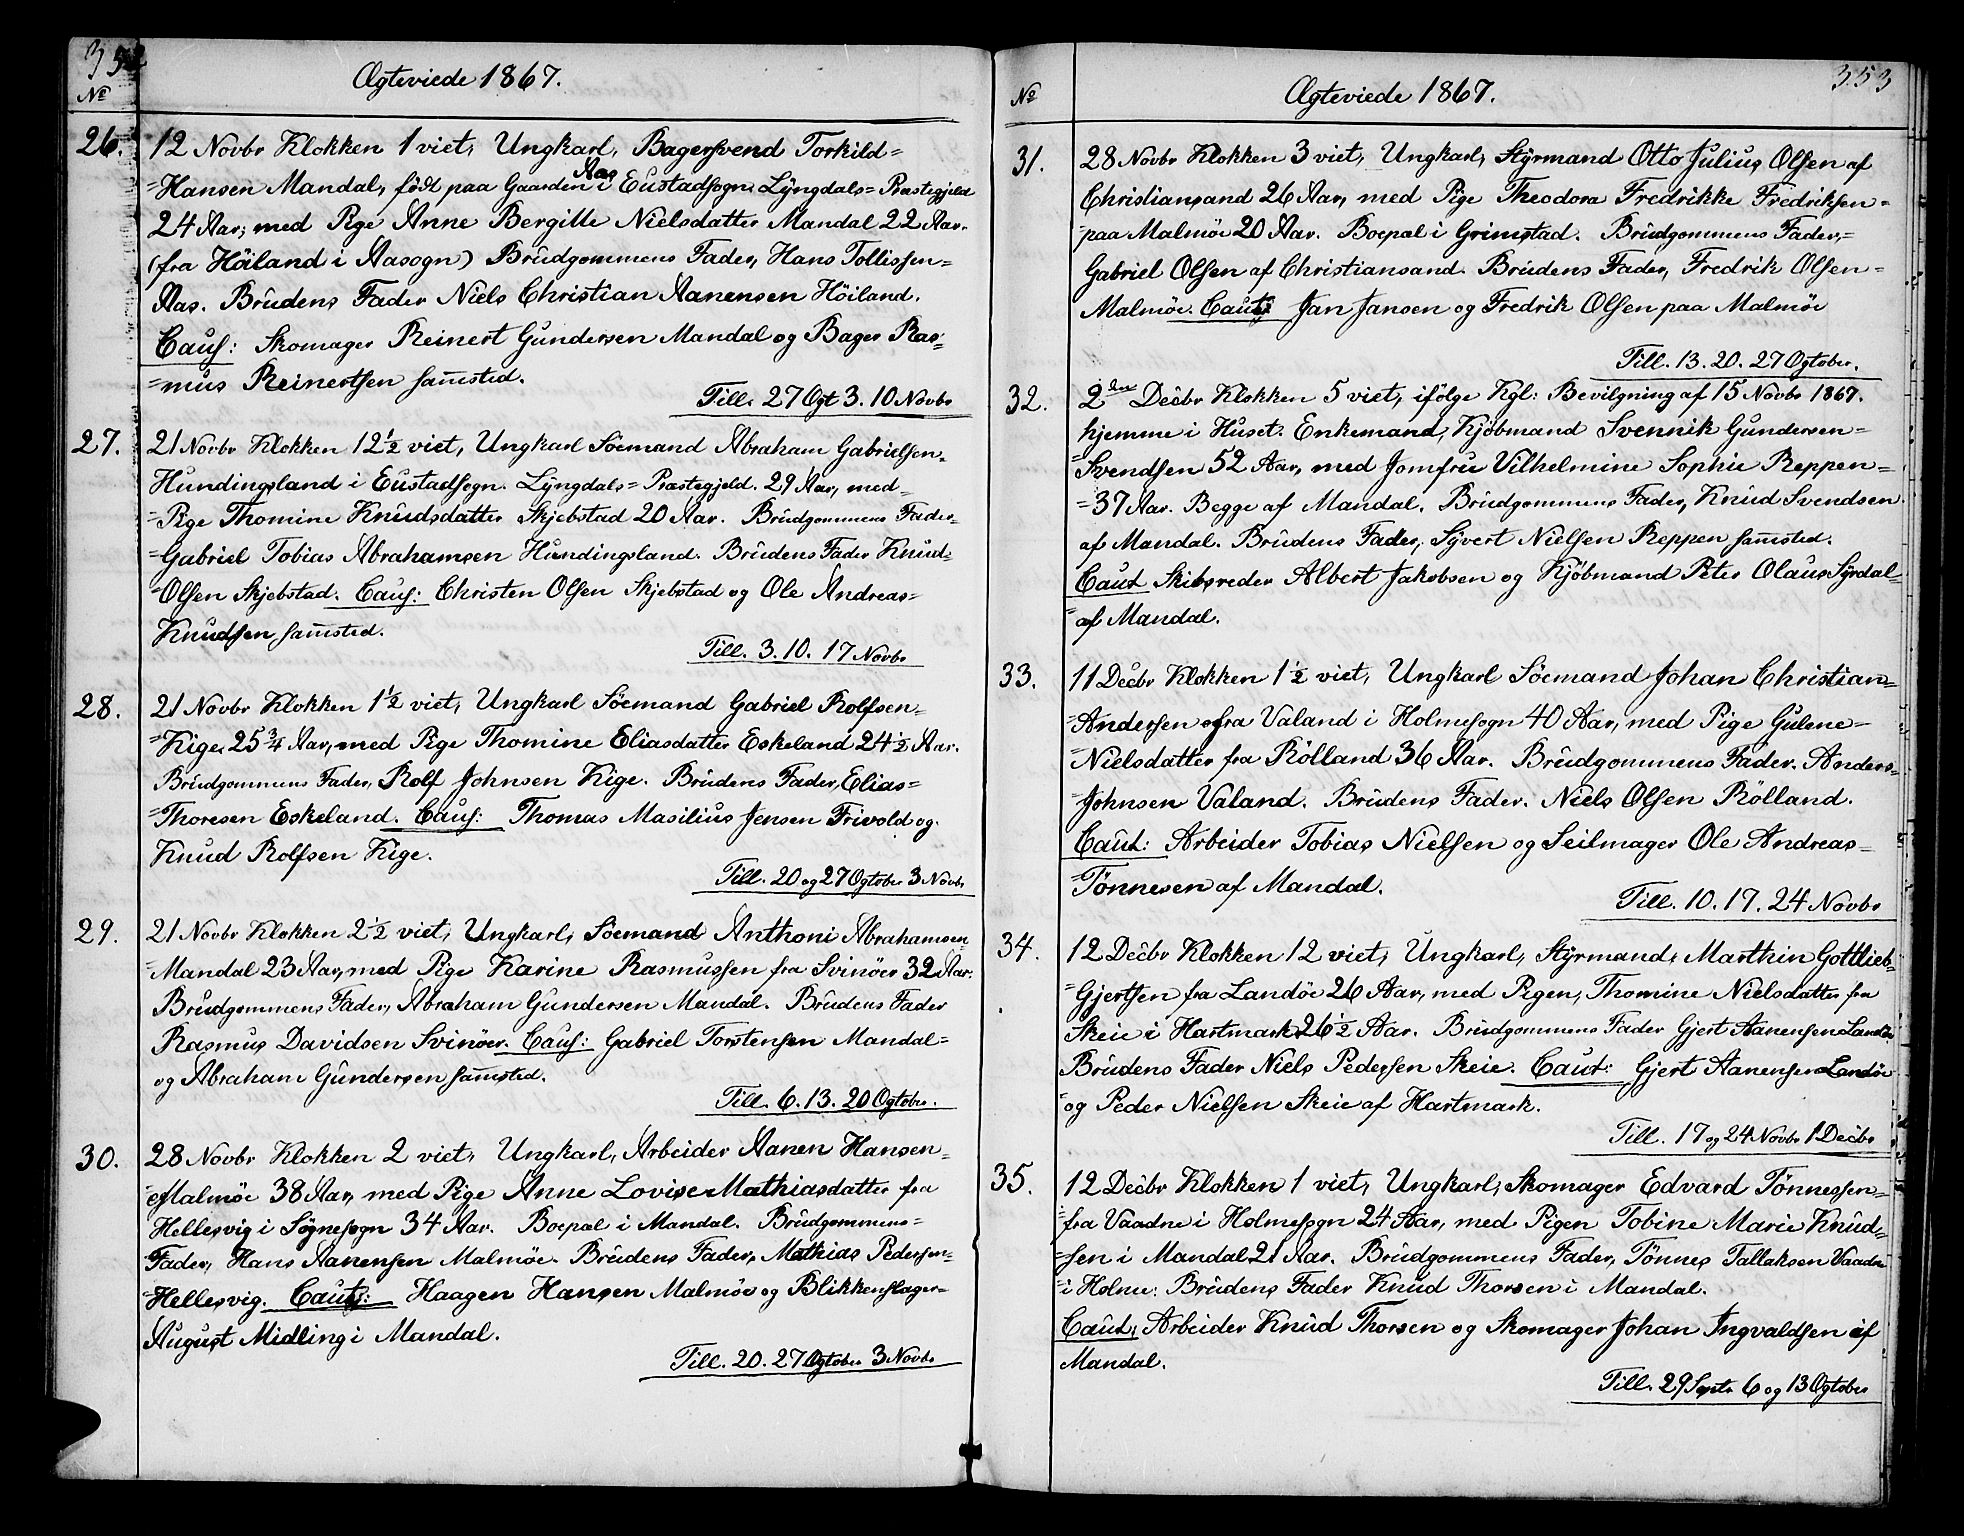 352
Ægteviede 1867.
Nº
26. 12 Novbr Klokken 1 viet, Ungkarl, Bagersvend Torkild=
=Hansen Mandal, födt paa Gaarden Aas i Eustadsogn Lyngdals=Præstegjeld
24 Aar; med Pige Anne Bergitte Nielsdatter Mandal 22 Aar.
(fra Höiland i Aasogn) Brudgommens Fader, Hans Tollissen=
Aas. Brudens Fader Niels Christian Aanensen Höiland.
Cauf: Skomager Reinert Gundersen Mandal og Bager Ras=
=mus Reinertsen sam̄sted.
Till. 27 Ogt 3. 10 Novbr
27. 21 Novbr Klokken 12½ viet, Ungkarl Söemand Abraham Gabrielsen=
Hundingsland i Eustadsogn. Lyngdals=Præstegjeld. 29 Aar, med=
=Pige Thomine Knudsdatter Skjebstad 20 Aar. Brudgommens Fader=
=Gabriel Tobias Abrahamsen Hundingsland. Brudens Fader Knud=
=Olsen Skjebstad. Cauf: Christen Olsen Skjebstad og Ole Andreas=
Knudsen sam̄sted.
Till. 3. 10. 17 Novbr
28. 21 Novbr Klokken 1½ viet, Ungkarl Söemand Gabriel Rolfsen=
=Kige, 25¾ Aar, med Pige Thomine Eliasdatter Eskeland 24½ Aar.
Brudgommens Fader, Rolf Johnsen Kige. Brudens Fader, Elias=
=Thoresen Eskeland. Cauf: Thomas Masilius Jensen Frivold og
Knud Rolfsen Kige.
Till. 20 og 27 Ogtober 3 Novbr
29. 21 Novbr Klokken 2½ viet, Ungkarl, Söemand Anthoni Abrahamsen
=Mandal 23 Aar, med Pige Karine Rasmussen fra Svinöer 32 Aar.
Brudgommens Fader, Abraham Gundersen Mandal. Brudens Fader
Rasmus Davidsen Svinöer. Cauf: Gabriel Torstensen Mandal=
og Abraham Gundersen sam̄sted.
Till. 6. 13. 20 Ogtober.
30. 28 Novbr Klokken 2 viet, Ungkarl, Arbeider Aanen Hansen=
=Malmöe 38 Aar, med Pige Anne Lovise Mathiasdatter fra
Hellesvig i Sögnesogn 34 Aar. Boepæl i Mandal. Brudgommens=
Fader, Hans Aanensen Malmöe. Brudens Fader, Mathias Pedersen=
=Hellesvig. Caut: Haagen Hansen Malmöe og Blikkenslager=
August Midling i Mandal.
Till. 20. 27 Ogtober 3 Novbr
353
Nº
Ægteviede 1867.
31. 28 Novbr Klokken 3 viet, Ungkarl, Styrmand Otto Julius Olsen af
Christiansand 26 Aar, med Pige Theodora Fredrikke Fredriksen=
=paa Malmöe 20 Aar. Boepal i Grimstad. Brudgommens Fader,=
Gabriel Olsen af Christiansand. Brudens Fader, Fredrik Olsen=
Malmöe. Caut: Jan Jansen og Fredrik Olsen paa Malmöe
Till. 13. 20. 27 Ogtober.
32. 2den Decbr Klokken 5 viet, ifölge Kgl: Bevilgning af 15 Novbr 1867.
hjemme i Huset. Enkemand, Kjöbmand Svennik Gundersen=
=Svendsen 52 Aar, med Jomfru Vilhelmine Sophie Reppen=
=37 Aar. Begge af Mandal. Brudgommens Fader, Knud Svendsen
af Mandal. Brudens Fader, Syvert Nielsen Reppen sam̄sted.
Caut Skibsreder Albert Jakobsen og Kjöbmand Peter Olaus Syrdal=
=af Mandal.
33. 11 Decbr Klokken 1½ viet, Ungkarl Söemand Johan Christian=
=Andersen fra Valand i Holmesogn 40 Aar, med Pige Gulene=
=Nielsdatter fra Rölland 36 Aar. Brudgommens Fader. Anders=
=Johnsen Valand. Brudens Fader. Niels Olsen Rölland.
Caut: Arbeider Tobias Nielsen og Seilmager Ole Andreas=
=Tönnesen af Mandal.
Till. 10. 17. 24 Novbr
34. 12 Decbr Klokken 12 viet, Ungkarl, Styrmand, Marthin Gottlieb=
=Gjertsen fra Landöe 26 Aar, med Pigen, Thomine Nielsdatter fra
Skeie i Hartmark 26½ Aar. Brudgommens Fader Gjert Aanensen Landöe
Brudens Fader Niels Pedersen Skeie. Caut: Gjert Aanensen Landöe
og Peder Nielsen Skeie af Hartmark.
Till. 17 og 24 Novbr 1 Decbr
35. 12 Decbr Klokken 1 viet, Ungkarl, Skomager Edvard Tönnessen=
=fra Vaadne i Holmesogn 24 Aar, med Pigen Tobine Marie Knud=
=sen i Mandal 21 Aar. Brudgommens Fader, Tönnes Tallaksen Vaadne
=i Holme: Brudens Fader Knud Thorsen i Mandal.
Caut, Arbeider Knud Thorsen og Skomager Johan Ingvaldsen af
Mandal.
Till. 29 Septr 6 og 13 Ogtober